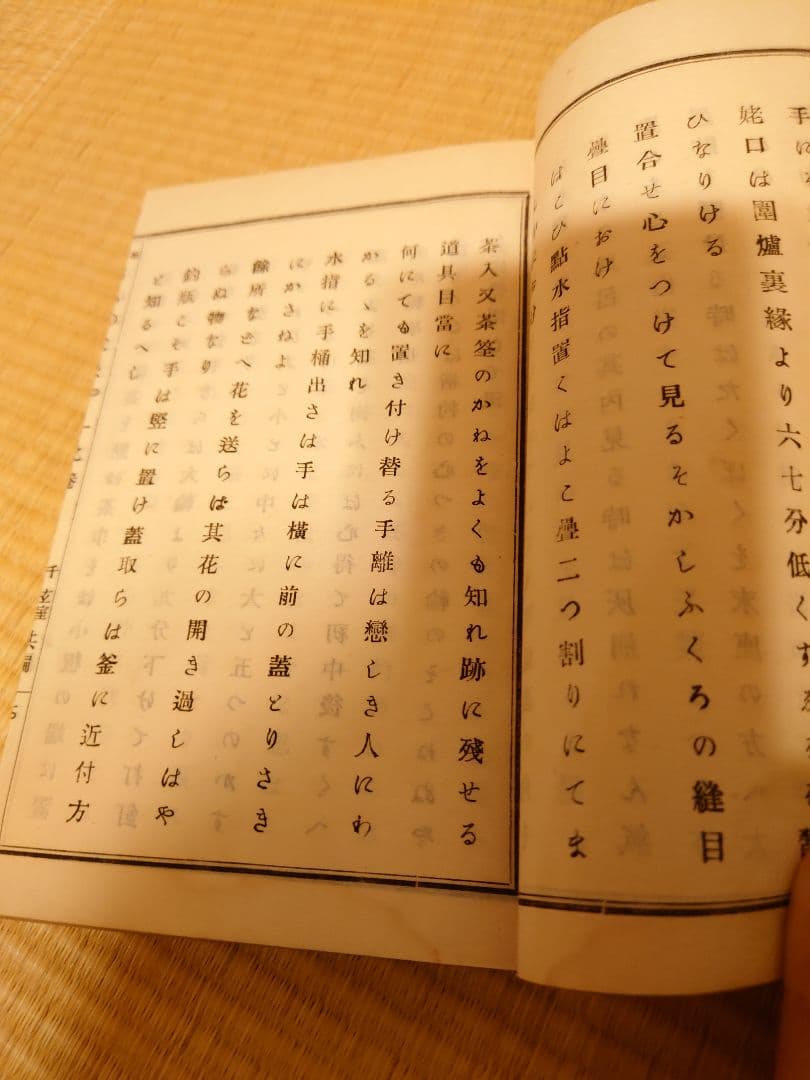 姥口は圍爐裏緣より六七分低くすゑる
ひなりける
置合せ心をつけて見るそかしふくろの縫目
疊目におけ
はこひ點水指置くはよこ疊二つ割りにてま
茶入又茶筌のかねをよくも知れ跡に殘せる
道具目當に
何にても置き付け替る手離は戀しき人にわ
かるゝを知れ
水指に手桶出さは手は橫に前の蓋とりさき
にかさねよ
餘所なとへ花を送らは其花の開き過しはや
らぬ物なり
釣瓶こそ手は竪に置け蓋取らは釜に近付方
と知るへし